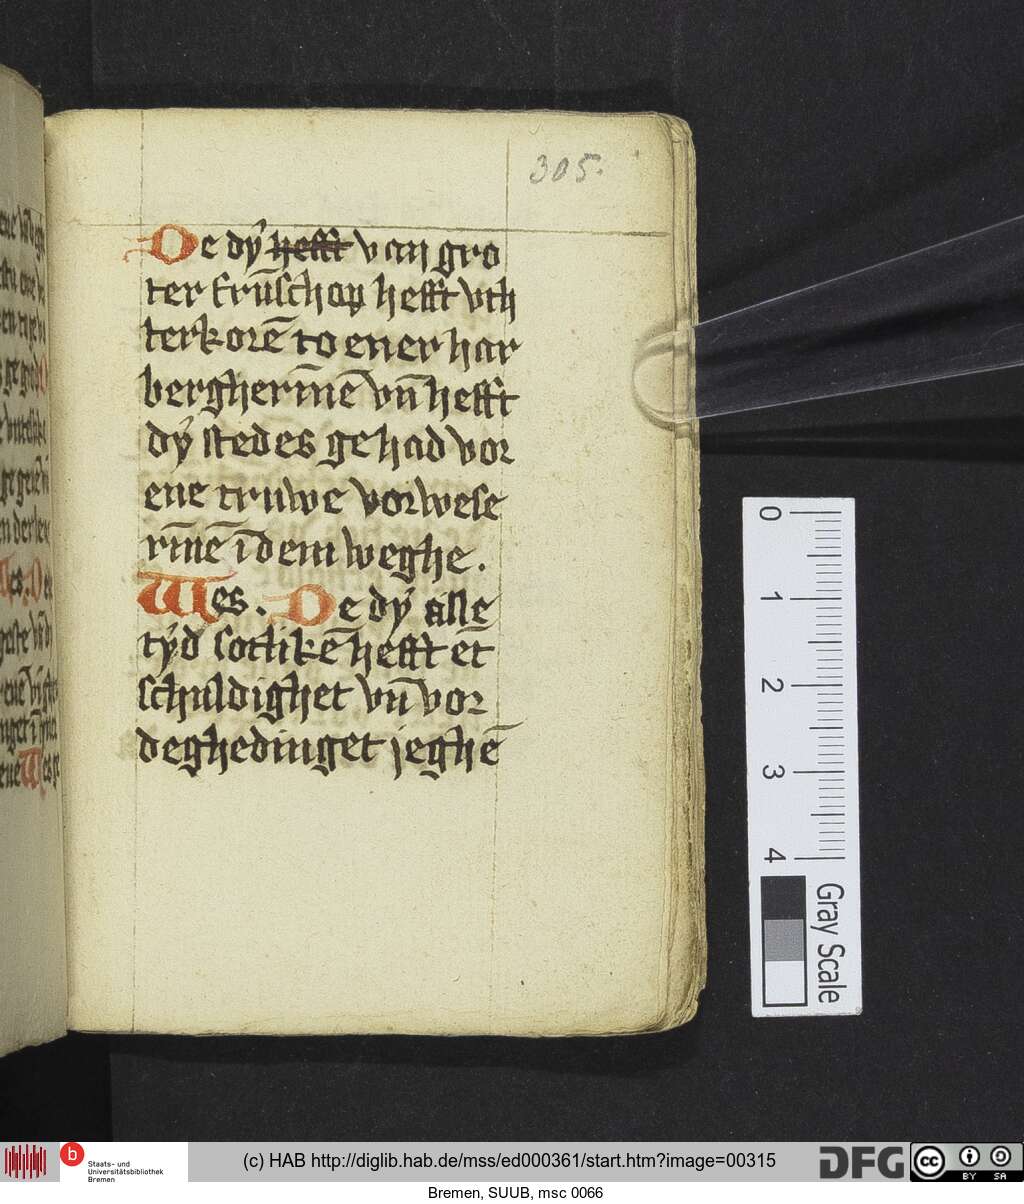 305.
De dÿ hefft van gro
ter frūschop hefft vth
terkorē to ener har
bergherīnē vn̄ hefft
dÿ stedes gehad vor
ene truwe vorwese
rīnē ī dem weghe.
Wes. De dÿ alle
tÿd sotlikē hefft ēt
schuldighet vn̄ vor
deghedinget jeghē
0
1
2
3
4
Gray Scale
b
Staats- und
Universitätsbibliothek
Bremen
(c) HAB http://diglib.hab.de/mss/ed000361/start.htm?image=00315
DFG
cc
BY SA
Bremen, SUUB, msc 0066